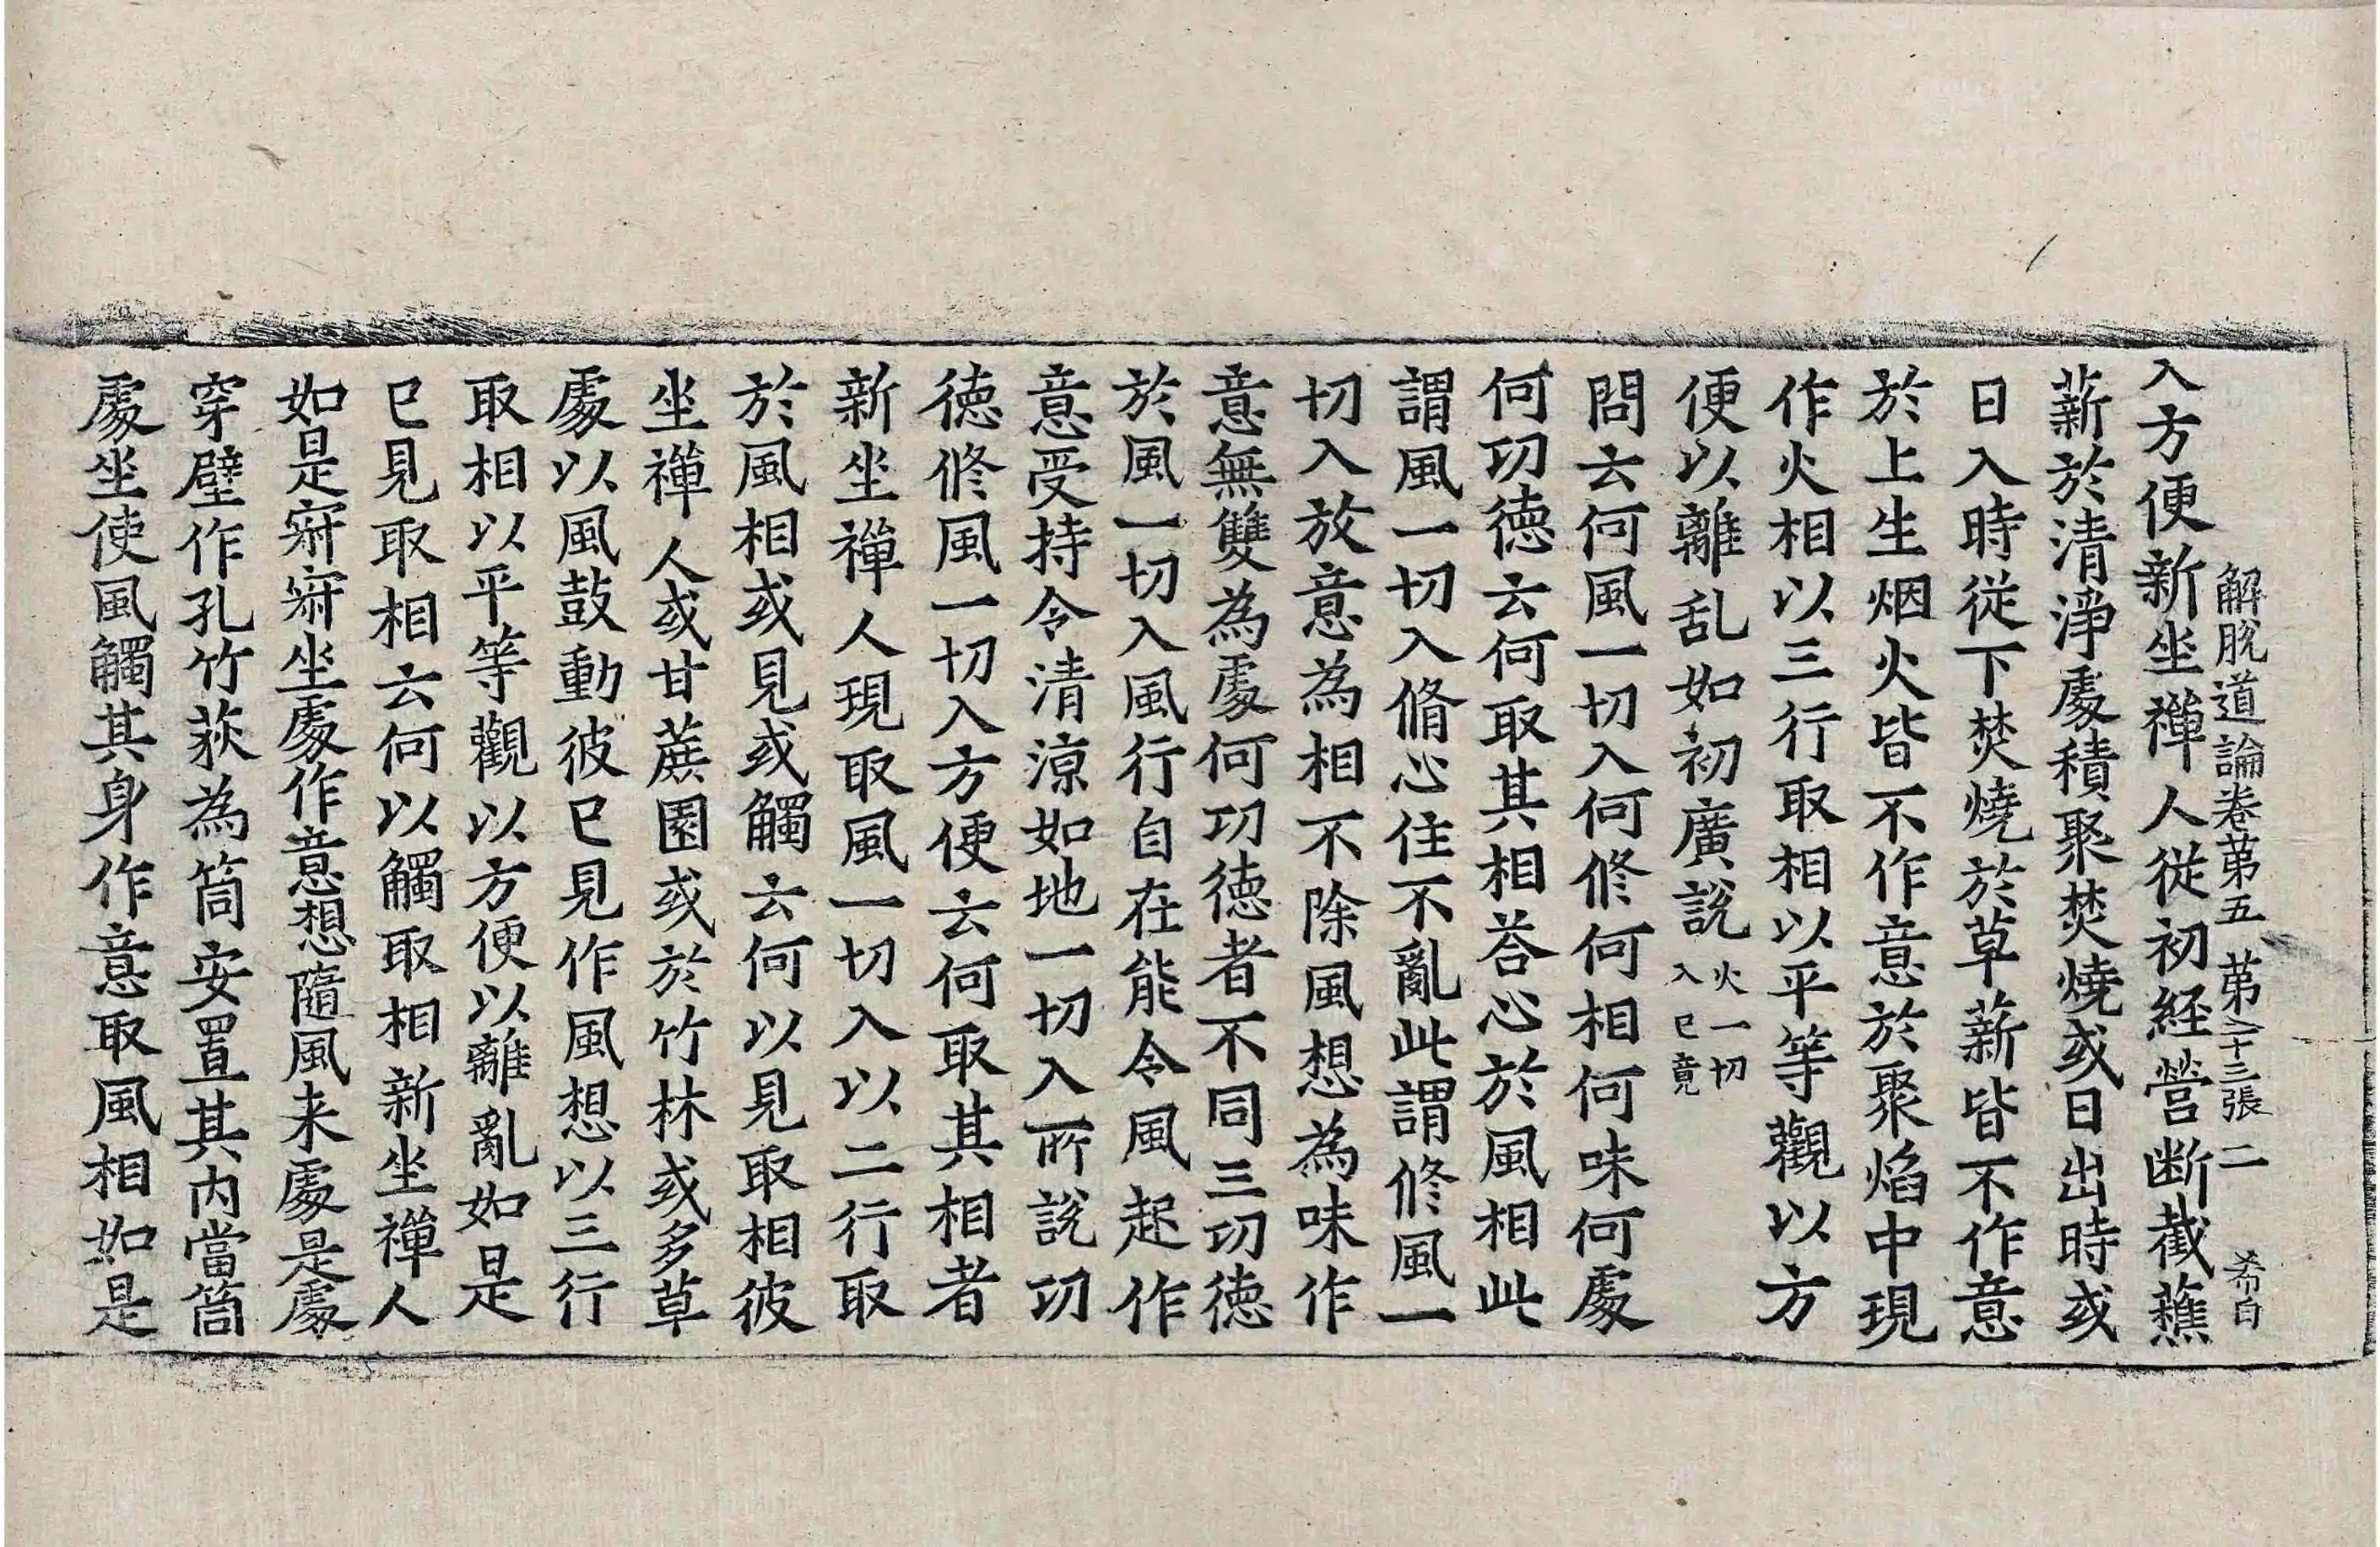 解脫道論卷第五 第二十三張 二 希白
入方便新坐禪人從初經營断截蕉
薪於清淨處積聚焚燒或日出時或
日入時從下焚燒於草薪皆不作意
於上生烟火皆不作意於聚焰中現
作火相以三行取相以平等觀以方
便以離乱如初廣說火一切入已竟
問云何風一切入何修何相何味何處
何功德云何取其相荅心於風相此
謂風一切入脩心住不亂此謂修風一
切入放意為相不除風想為味作
意無雙為處何功德者不同三功德
於風一切入風行自在能令風起作
意受持令清涼如地一切入所說功
德修風一切入方便云何取其相者
新坐禪人現取風一切入以二行取
於風相或見或觸云何以見取相彼
坐禪人或甘蔗園或於竹林或多草
處以風鼓動彼已見作風想以三行
取相以平等觀以方便以離亂如是
已見取相云何以觸取相新坐禪人
如是㝛㝛坐處作意想隨風来處是處
穿壁作孔竹荻為筒安置其内當筒
處坐使風觸其身作意取風相如是